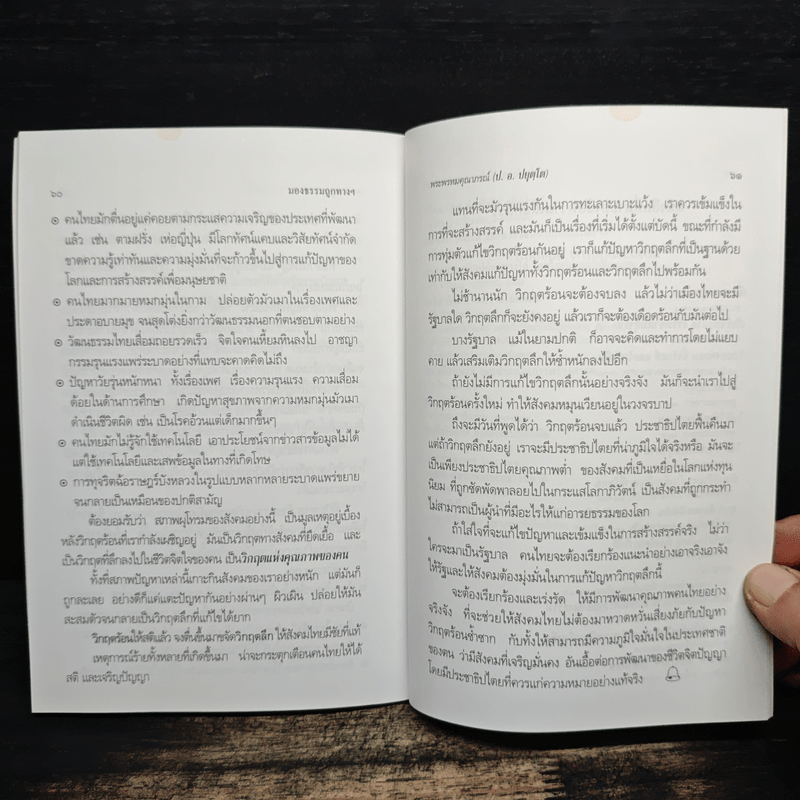 ๖๐ มองธรรมถูกทางฯ
๏ คนไทยมักตื่นอยู่แค่คอยตามกระแสความเจริญของประเทศที่พัฒนา
แล้ว เช่น ตามฝรั่ง เห่อญี่ปุ่น มีโลกทัศน์แคบและวิสัยทัศน์จำกัด
ขาดความรู้เท่าทันและความมุ่งมั่นที่จะก้าวขึ้นไปสู่การแก้ปัญหาของ
โลกและการสร้างสรรค์เพื่อมนุษยชาติ
๏ คนไทยมากมายหมกมุ่นในกาม ปล่อยตัวมัวเมาในเรื่องเพศและ
ประดาอบายมุข จนสุดโต่งยิ่งกว่าวัฒนธรรมนอกที่ตนชอบตามอย่าง
๏ วัฒนธรรมไทยเสื่อมถอยรวดเร็ว จิตใจคนเหี้ยมหินลงไป อาชญา
กรรมรุนแรงแพร่ระบาดอย่างที่แทบจะคาดคิดไม่ถึง
๏ ปัญหาวัยรุ่นหนักหนา ทั้งเรื่องเพศ เรื่องความรุนแรง ความเสื่อม
ด้อยในด้านการศึกษา เกิดปัญหาสุขภาพจากความหมกมุ่นมัวเมา
ดำเนินชีวิตผิด เช่น เป็นโรคอ้วนแต่เด็กมากขึ้นๆ
๏ คนไทยมักไม่รู้จักใช้เทคโนโลยี เอาประโยชน์จากข่าวสารข้อมูลไม่ได้
แต่ใช้เทคโนโลยีและเสพข้อมูลในทางที่เกิดโทษ
๏ การทุจริตฉ้อราษฎร์บังหลวงในรูปแบบหลากหลายระบาดแพร่ขยาย
จนกลายเป็นเหมือนของปกติสามัญ
ต้องยอมรับว่า สภาพผุโทรมของสังคมอย่างนี้ เป็นมูลเหตุอยู่เบื้อง
หลังวิกฤตร้อนที่เรากำลังเผชิญอยู่ มันเป็นวิกฤตทางสังคมที่ยืดเยื้อ และ
เป็นวิกฤตที่ลึกลงไปในชีวิตจิตใจของคน เป็นวิกฤตแห่งคุณภาพของคน
ทั้งที่สภาพปัญหาเหล่านี้เกาะกินสังคมของเราอย่างหนัก แต่มันก็
ถูกละเลย อย่างดีก็แค่แตะปัญหากันอย่างผ่านๆ ผิวเผิน ปล่อยให้มัน
สะสมตัวจนกลายเป็นวิกฤตลึกที่แก้ไขได้ยาก
วิกฤตร้อนให้สติแล้ว จงตื่นขึ้นมาขจัดวิกฤตลึก ให้สังคมไทยมีชัยที่แท้
เหตุการณ์ร้ายทั้งหลายที่เกิดขึ้นมา น่าจะกระตุกเตือนคนไทยให้ได้
สติ และเจริญปัญญา
พระพรหมคุณาภรณ์ (ป. อ. ปยุตฺโต) ๖๑
แทนที่จะมัวรุนแรงกันในการทะเลาะเบาะแว้ง เราควรเข้มแข็งใน
การที่จะสร้างสรรค์ และมันก็เป็นเรื่องที่เริ่มได้ตั้งแต่บัดนี้ ขณะที่กำลังมี
การทุ่มตัวแก้ไขวิกฤตร้อนกันอยู่ เราก็แก้ปัญหาวิกฤตลึกที่เป็นฐานด้วย
เท่ากับให้สังคมแก้ปัญหาทั้งวิกฤตร้อนและวิกฤตลึกไปพร้อมกัน
ไม่ช้านานนัก วิกฤตร้อนจะต้องจบลง แล้วไม่ว่าเมืองไทยจะมี
รัฐบาลใด วิกฤตลึกก็จะยังคงอยู่ แล้วเราก็จะต้องเดือดร้อนกับมันต่อไป
บางรัฐบาล แม้ในยามปกติ ก็อาจจะคิดและทำการโดยไม่แยบ
คาย แล้วเสริมเติมวิกฤตลึกให้ซ้ำหนักลงไปอีก
ถ้ายังไม่มีการแก้ไขวิกฤตลึกนั้นอย่างจริงจัง มันก็จะนำเราไปสู่
วิกฤตร้อนครั้งใหม่ ทำให้สังคมหมุนเวียนอยู่ในวงจรบาป
ถึงจะมีวันที่พูดได้ว่า วิกฤตร้อนจบแล้ว ประชาธิปไตยฟื้นคืนมา
แต่ถ้าวิกฤตลึกยังอยู่ เราจะมีประชาธิปไตยที่น่าภูมิใจได้จริงหรือ มันจะ
เป็นเพียงประชาธิปไตยคุณภาพต่ำ ของสังคมที่เป็นเหยื่อในโลกแห่งทุน
นิยม ที่ถูกซัดพัดพาลอยไปในกระแสโลกาภิวัตน์ เป็นสังคมที่ถูกกระทำ
ไม่สามารถเป็นผู้นำที่มีอะไรให้แก่อารยธรรมของโลก
ถ้าใส่ใจที่จะแก้ไขปัญหาและเข้มแข็งในการสร้างสรรค์จริง ไม่ว่า
ใครจะมาเป็นรัฐบาล คนไทยจะต้องเรียกร้องแนะนำอย่างเอาจริงเอาจัง
ให้รัฐและให้สังคมต้องมุ่งมั่นในการแก้ปัญหาวิกฤตลึกนี้
จะต้องเรียกร้องและเร่งรัด ให้มีการพัฒนาคุณภาพคนไทยอย่าง
จริงจัง ที่จะช่วยให้สังคมไทยไม่ต้องมาหวาดหวั่นเสี่ยงภัยกับปัญหา
วิกฤตร้อนซ้ำซาก กับทั้งให้สามารถมีความภูมิใจมั่นใจในประเทศชาติ
ของตน ว่ามีสังคมที่เจริญมั่นคง อันเอื้อต่อการพัฒนาของชีวิตจิตปัญญา
โดยมีประชาธิปไตยที่ควรแก่ความหมายอย่างแท้จริง